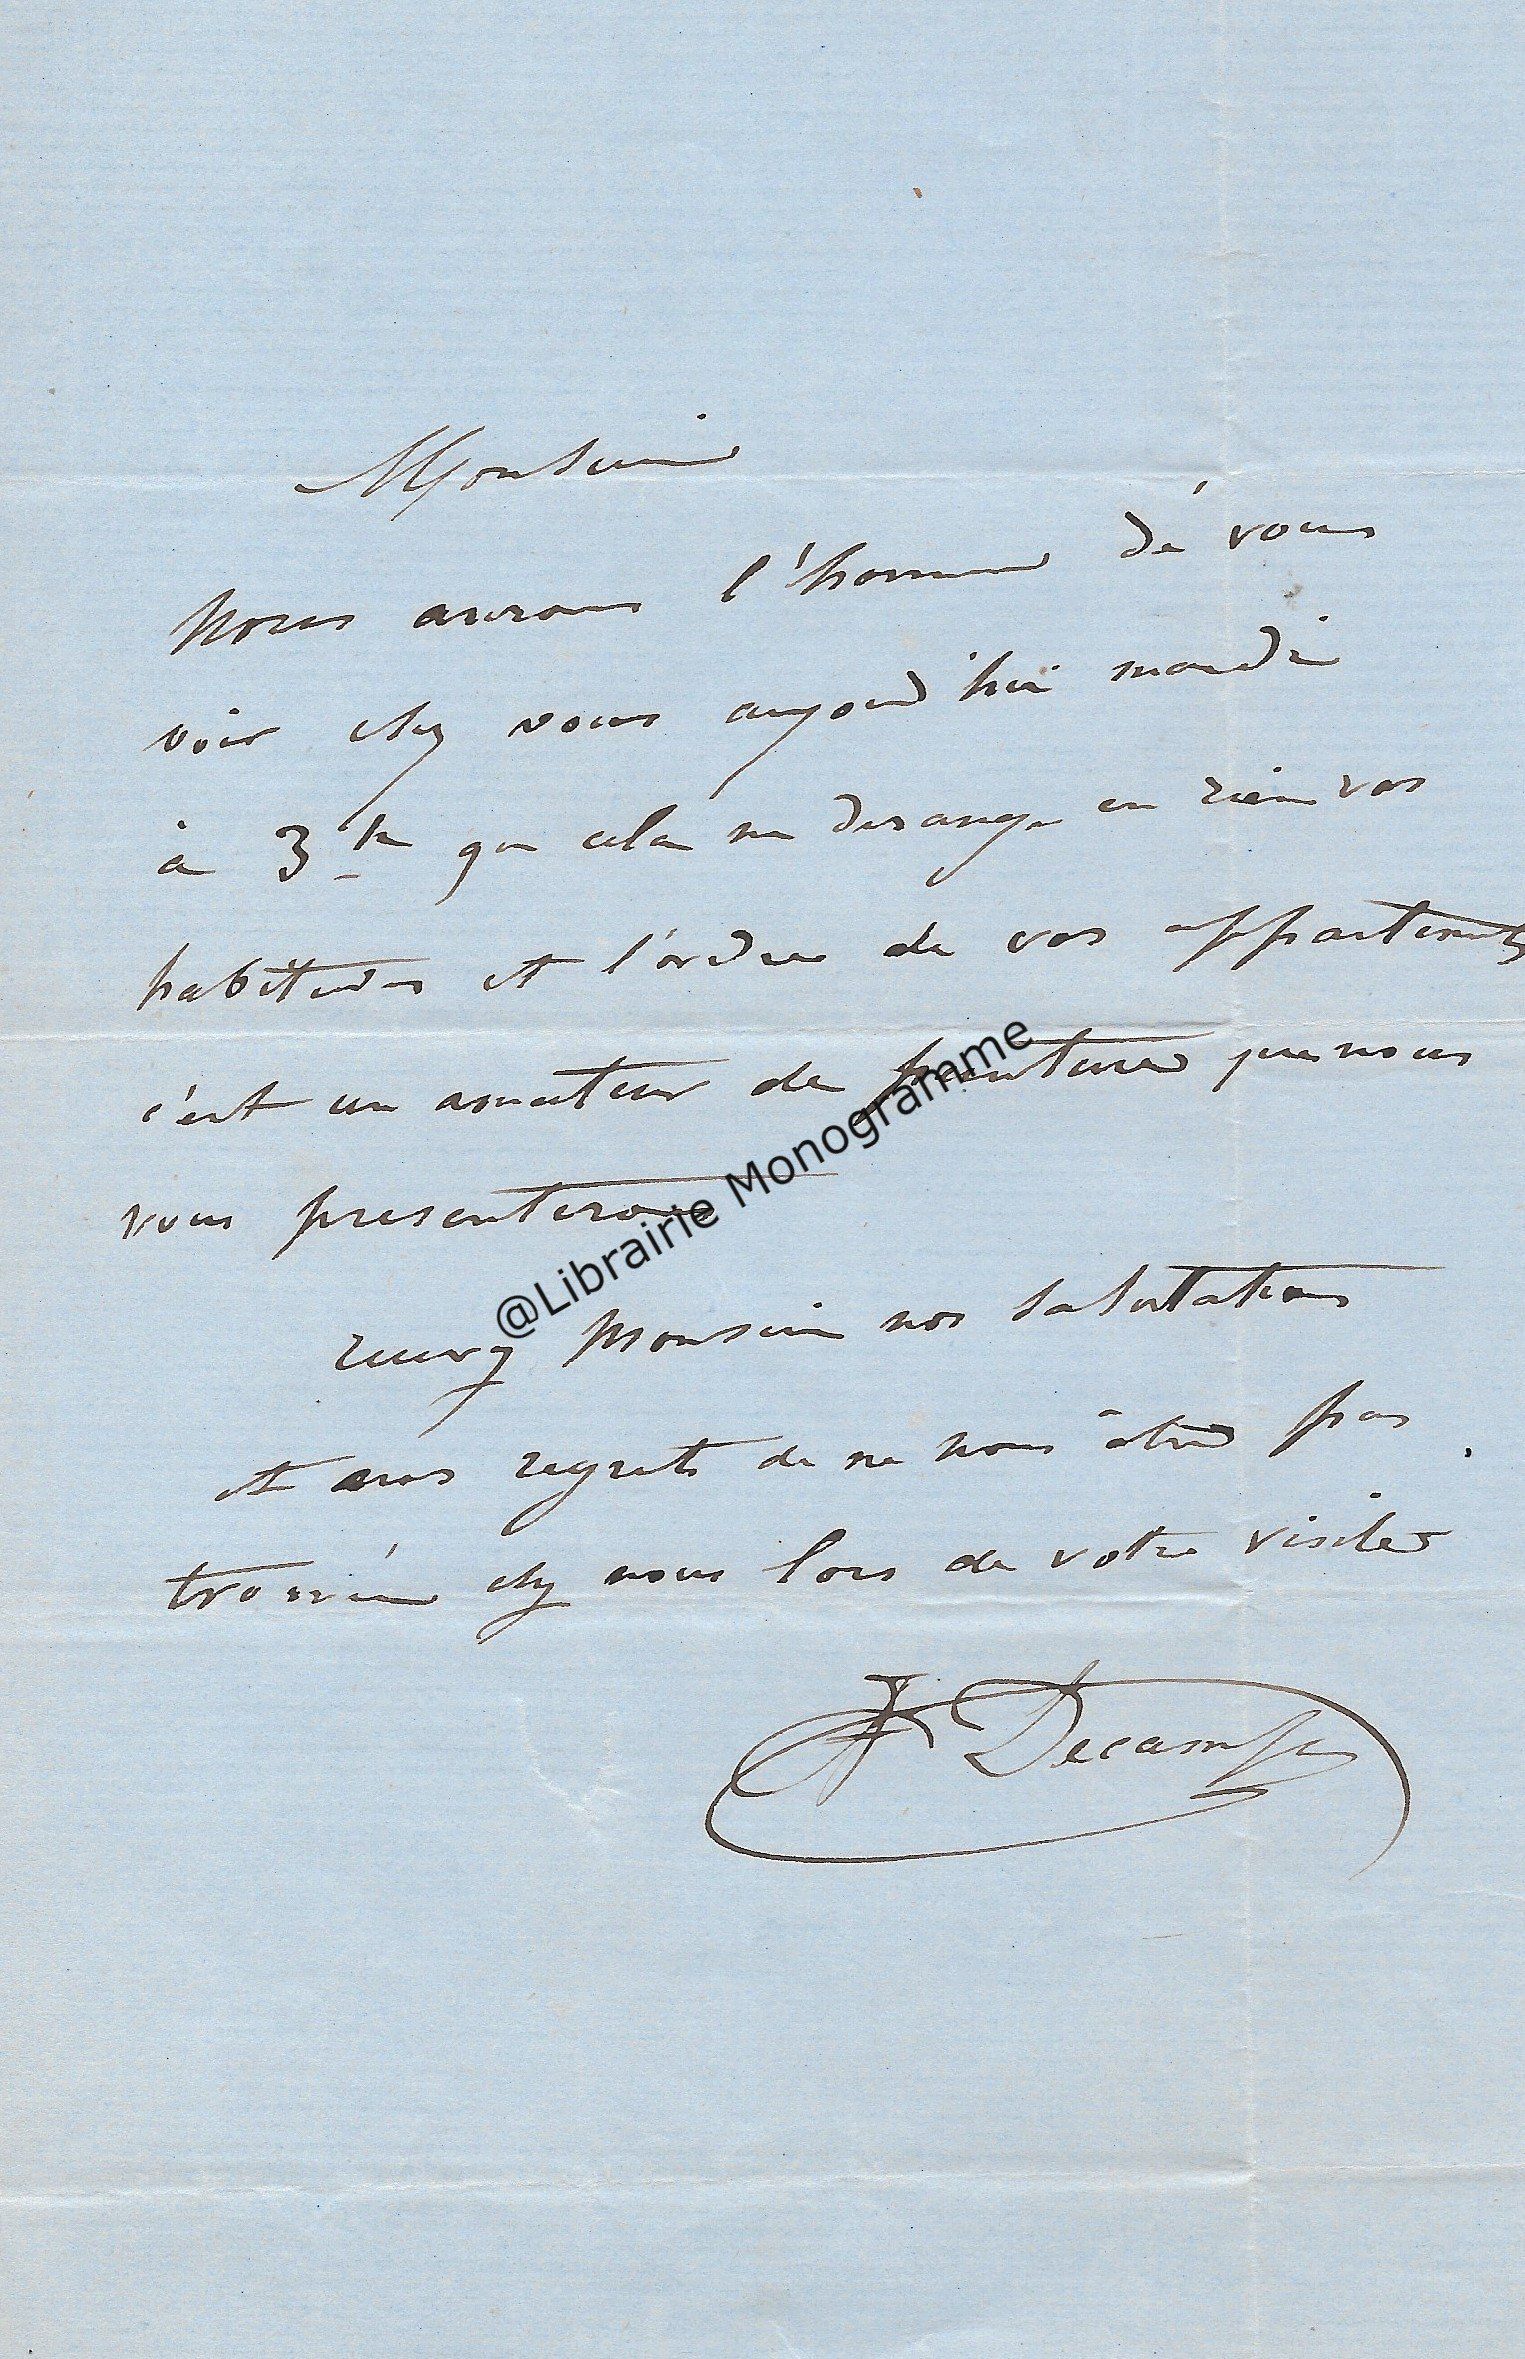 Monsieur
Nous aurons l'honneur dé vous
voir chez vous aujourd'hui mardi
à 3h que cela ne derange en rien vos
habitudes et l'ordre de vos appartements
c'est un amateur de peinture que nous
vous presenterons
@Librairie Monogramme
recevez Monsieur nos salutations
et nos regrets de ne nous être pas
trouvés chez nous lors de votre visite
Decamps